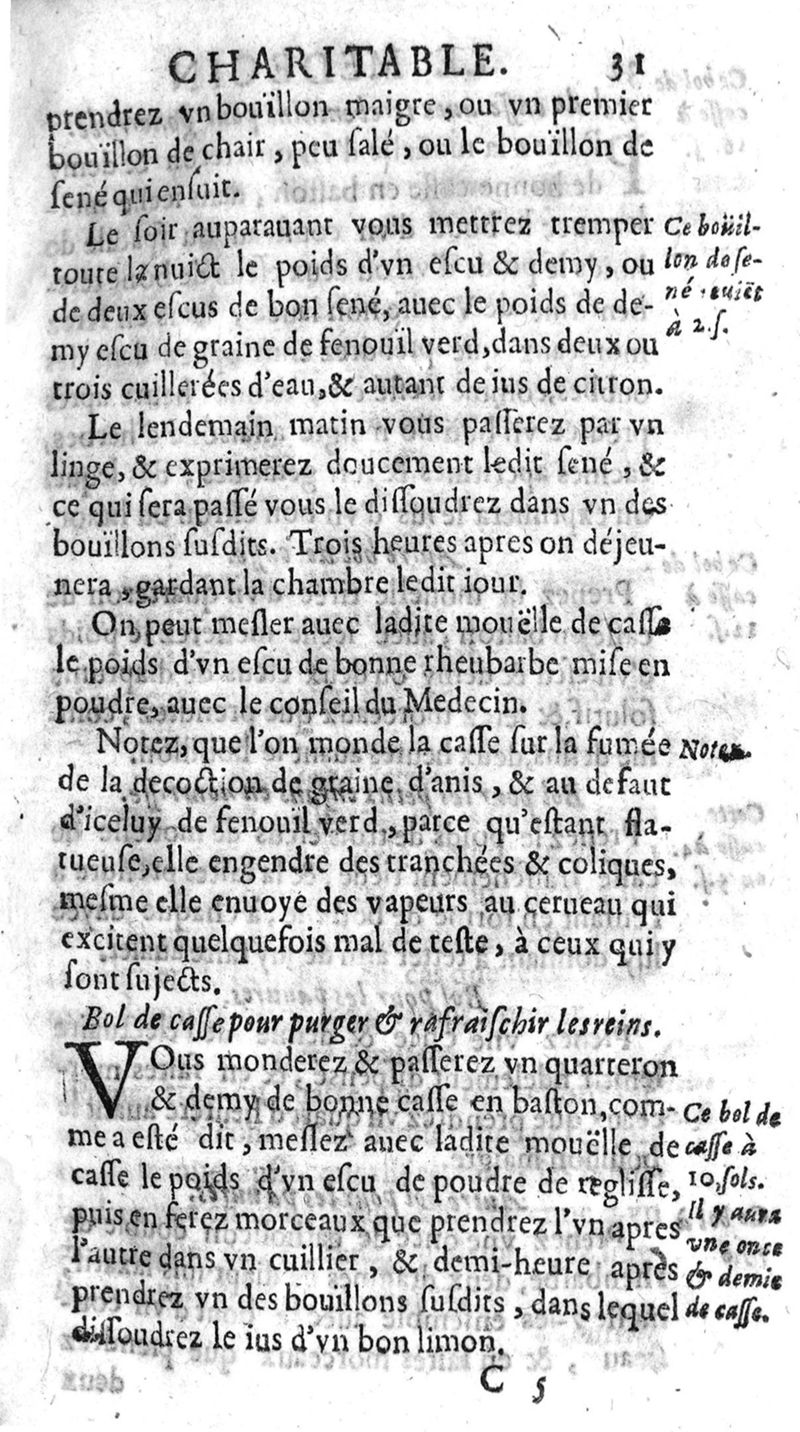 CHARITABLE. 31
prendrez vn boüillon maigre, ou vn premier
boüillon de chair, peu ſalé, ou le boüillon de
ſené qui enſuit.
Le ſoir auparauant vous mettrez tremper
toute la nuict le poids d'vn eſcu & demy, ou
de deux eſcus de bon ſené, auec le poids de de-
my eſcu de graine de fenoüil verd, dans deux ou
trois cuillerées d'eau, & autant de ius de citron.
Ce boüil-
lon de ſe-
né reuiēt
à 2. ſ.
Le lendemain matin vous paſſerez par vn
linge, & exprimerez doucement ledit ſené, &
ce qui ſera paſſé vous le diſſoudrez dans vn des
boüillons ſuſdits. Trois heures apres on déjeu-
nera, gardant la chambre ledit iour.
On peut meſler auec ladite mouëlle de caſſe
le poids d'vn eſcu de bonne rheubarbe miſe en
poudre, auec le conſeil du Medecin.
Notez, que l'on monde la caſſe ſur la fumée
de la decoction de graine d'anis, & au defaut
d'iceluy de fenoüil verd, parce qu'eſtant fla-
tueuſe, elle engendre des tranchées & coliques,
meſme elle enuoye des vapeurs au cerueau qui
excitent quelquefois mal de teſte, à ceux qui y
ſont ſujects.
Notez.
Bol de caſſe pour purger & rafraiſchir les reins.
VOus monderez & paſſerez vn quarteron
& demy de bonne caſſe en baſton, com-
me a eſté dit, meſlez auec ladite mouëlle de
caſſe le poids d'vn eſcu de poudre de regliſſe,
puis en ferez morceaux que prendrez l'vn apres
l'autre dans vn cuillier, & demi-heure après
prendrez vn des boüillons ſuſdits, dans lequel
diſſoudrez le ius d'vn bon limon.
Ce bol de
caſſe à
10. ſols.
il y aura
vne once
& demie
de caſſe.
C 5